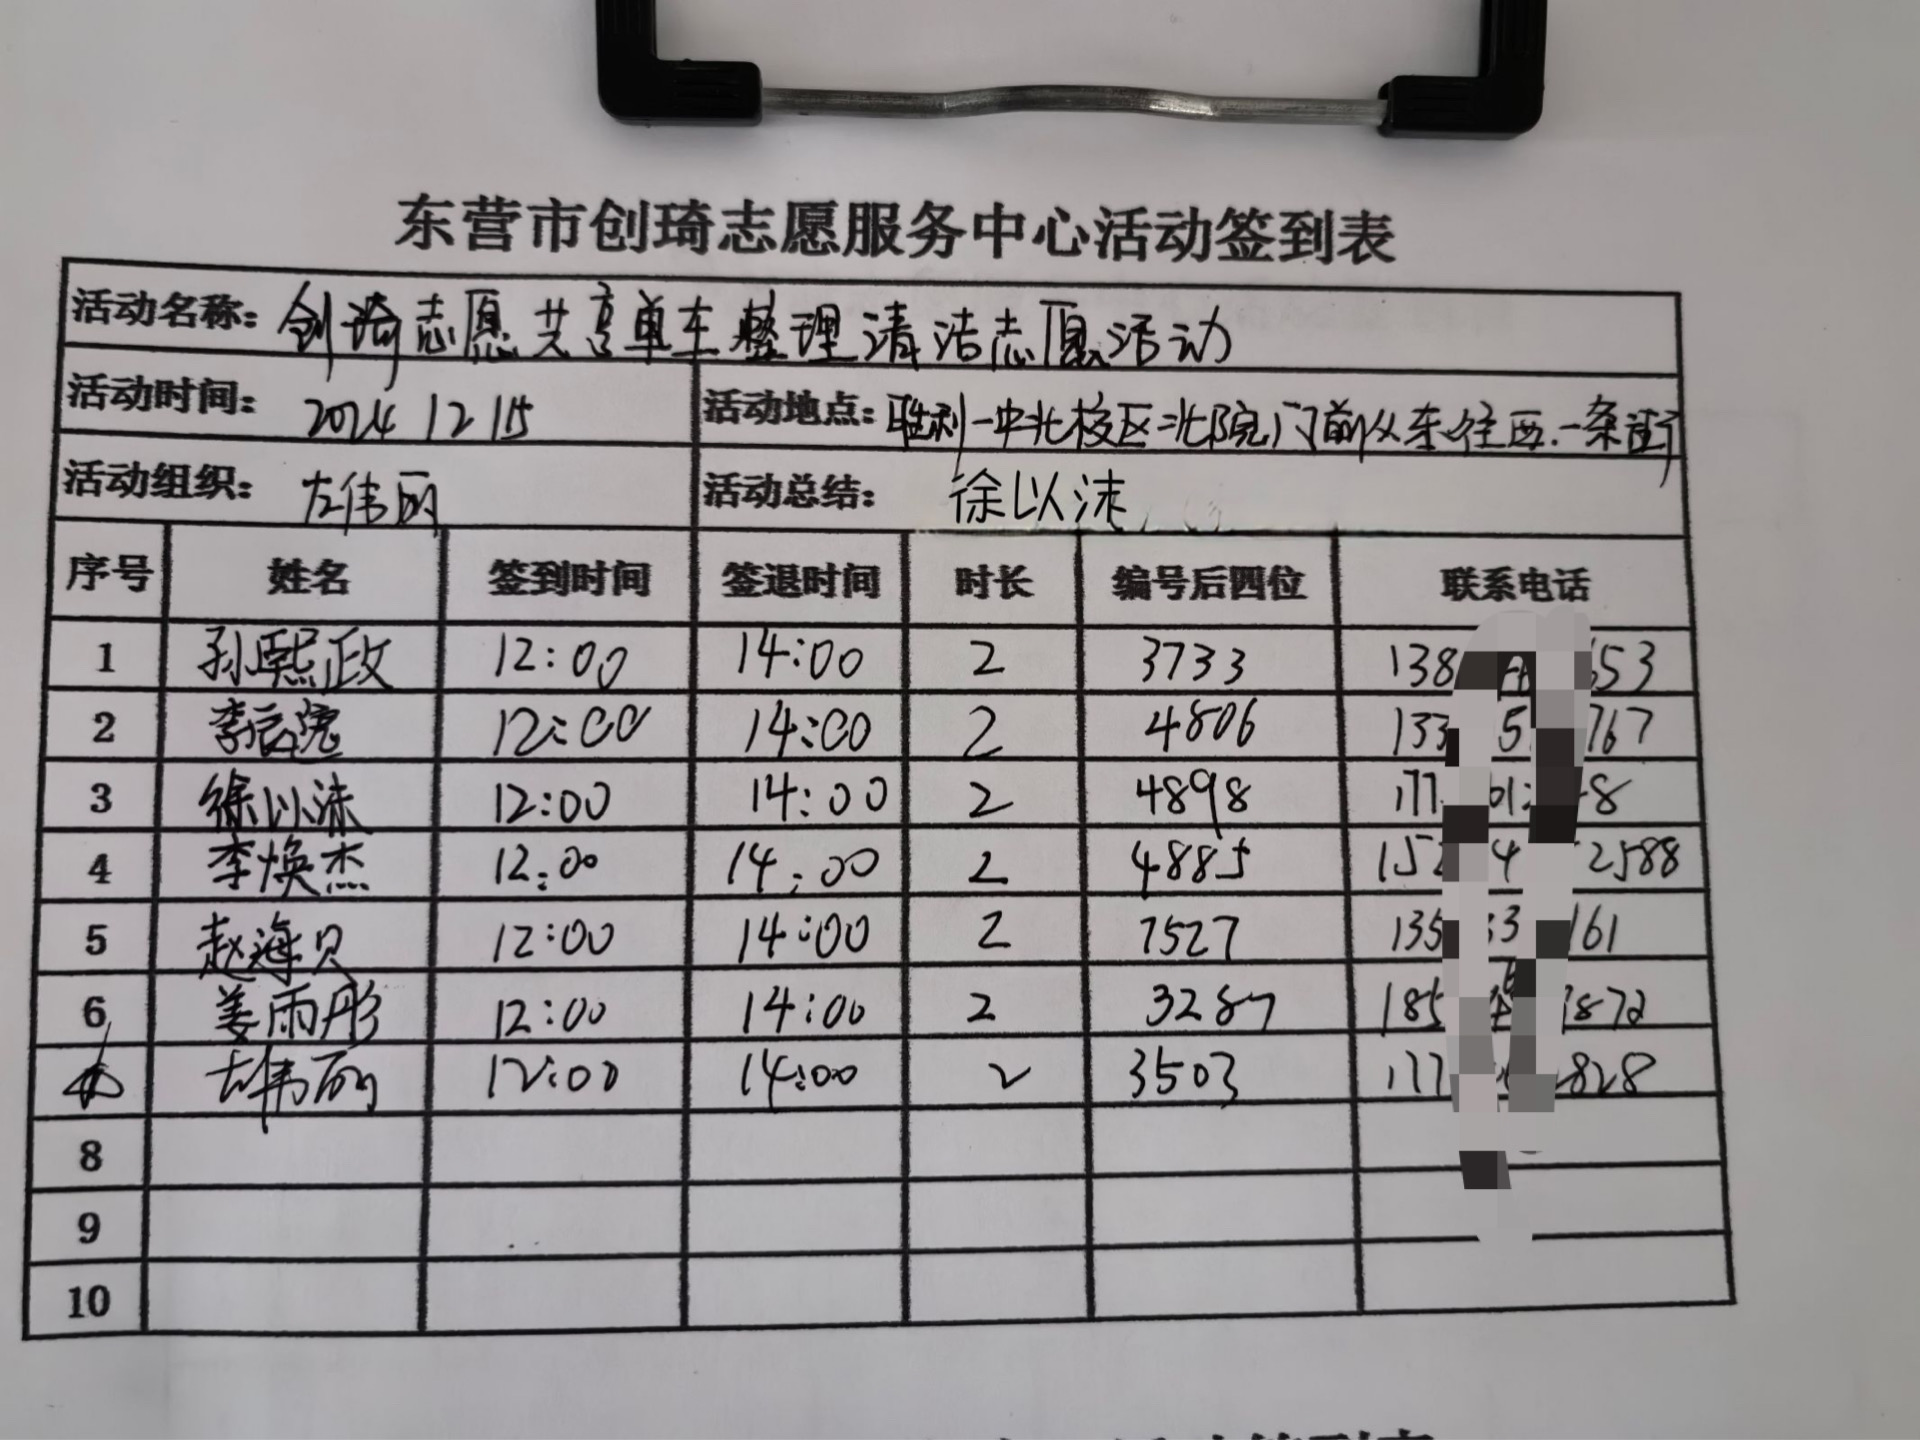 东营市创琦志愿服务中心活动签到表
活动名称：创琦志愿共享单车整理清洁志愿活动
活动时间：2024 12 15 活动地点：胜利一中北校区北院门前从东往西一条街
活动组织：左伟丽 活动总结：徐以沫
序号 姓名 签到时间 签退时间 时长 编号后四位 联系电话
1 孙熙政 12:00 14:00 2 3733 138 653
2 李 12:00 14:00 2 4806 133 5 767
3 徐以沫 12:00 14:00 2 4898 177 8
4 李焕杰 12:00 14:00 2 4885 152 4 2588
5 赵海贝 12:00 14:00 2 7527 135 33 161
6 姜雨彤 12:00 14:00 2 3287 185 872
左伟丽 12:00 14:00 2 3503 177 828
8
9
10